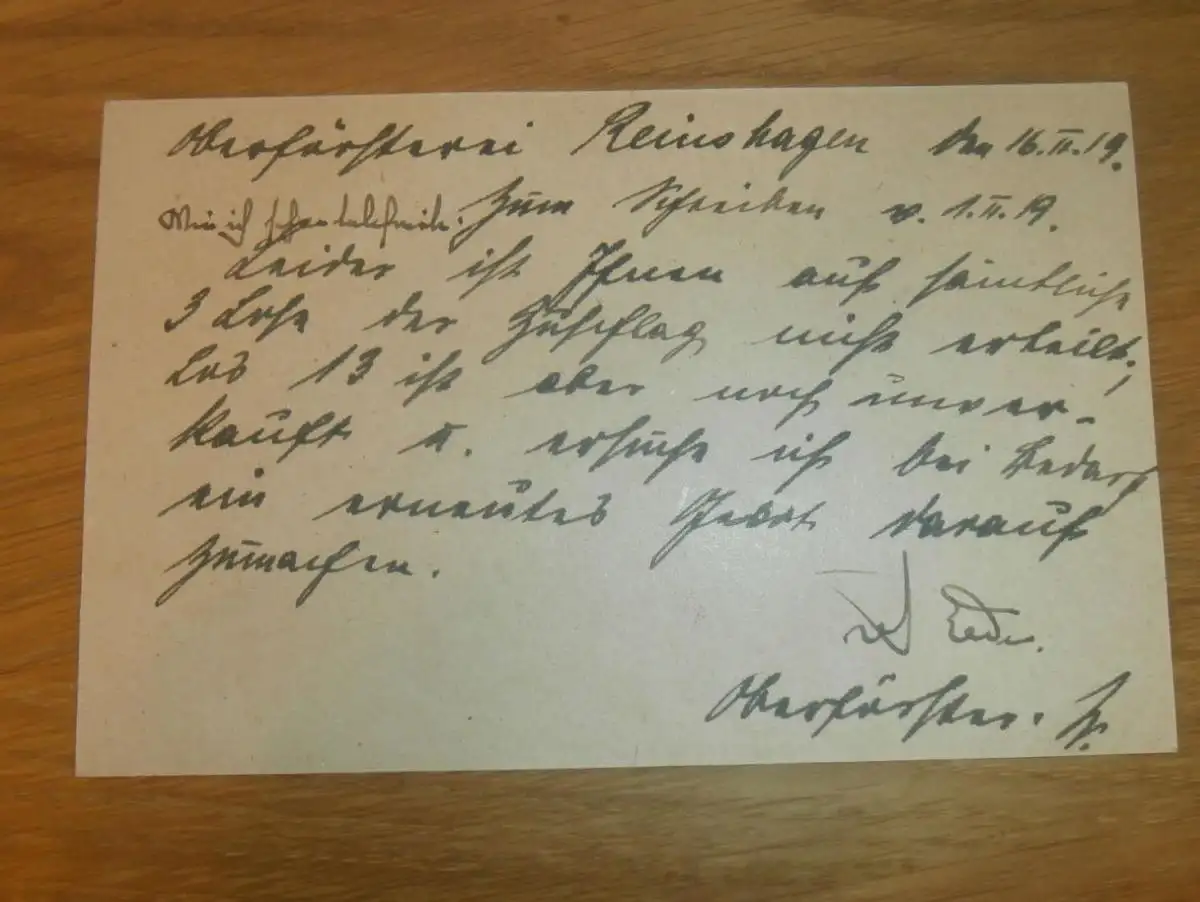 Oberförsterei Reinshagen den 16.II.19.
Wie ich schon telefonierte. Zum Schreiben v. 1.II.19.
Leider ist Ihnen auf sämtliche
3 Lose der Zuschlag nicht erteilt;
Los 13 ist aber noch unver-
kauft u. ersuche ich bei Bedarf
ein erneutes Gebot darauf
zumachen.
Oberförster.